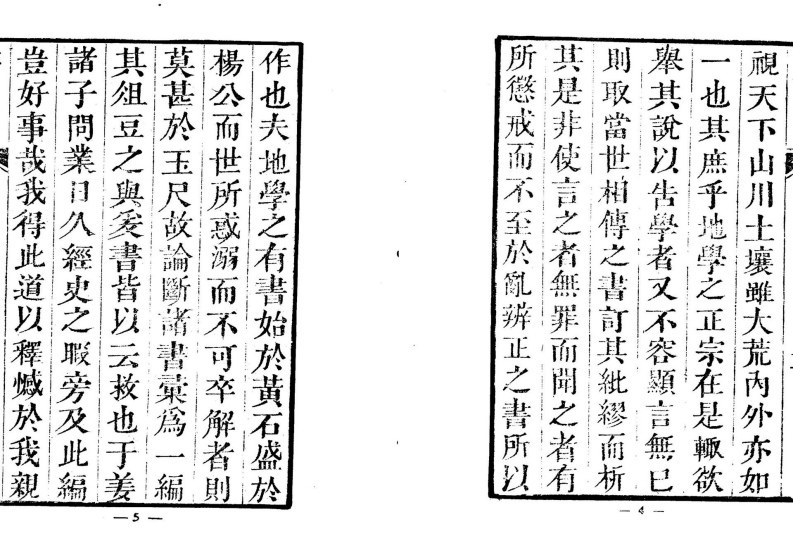 視天下山川土壤雖大荒內外亦如
一也其庶乎地學之正宗在是輙欲
舉其說以告學者又不容顯言無已
則取當世相傳之書訂其紕繆而析
其是非使言之者無罪而聞之者有
所懲戒而不至於亂辨正之書所以
— 4 —
作也夫地學之有書始於黃石盛於
楊公而世所惑溺而不可卒解者則
莫甚於玉尺故論斷諸書彙爲一編
其俎豆之與爰書皆以云救也于姜
諸子問業日久經史之暇旁及此編
豈好事哉我得此道以釋憾於我親
— 5 —